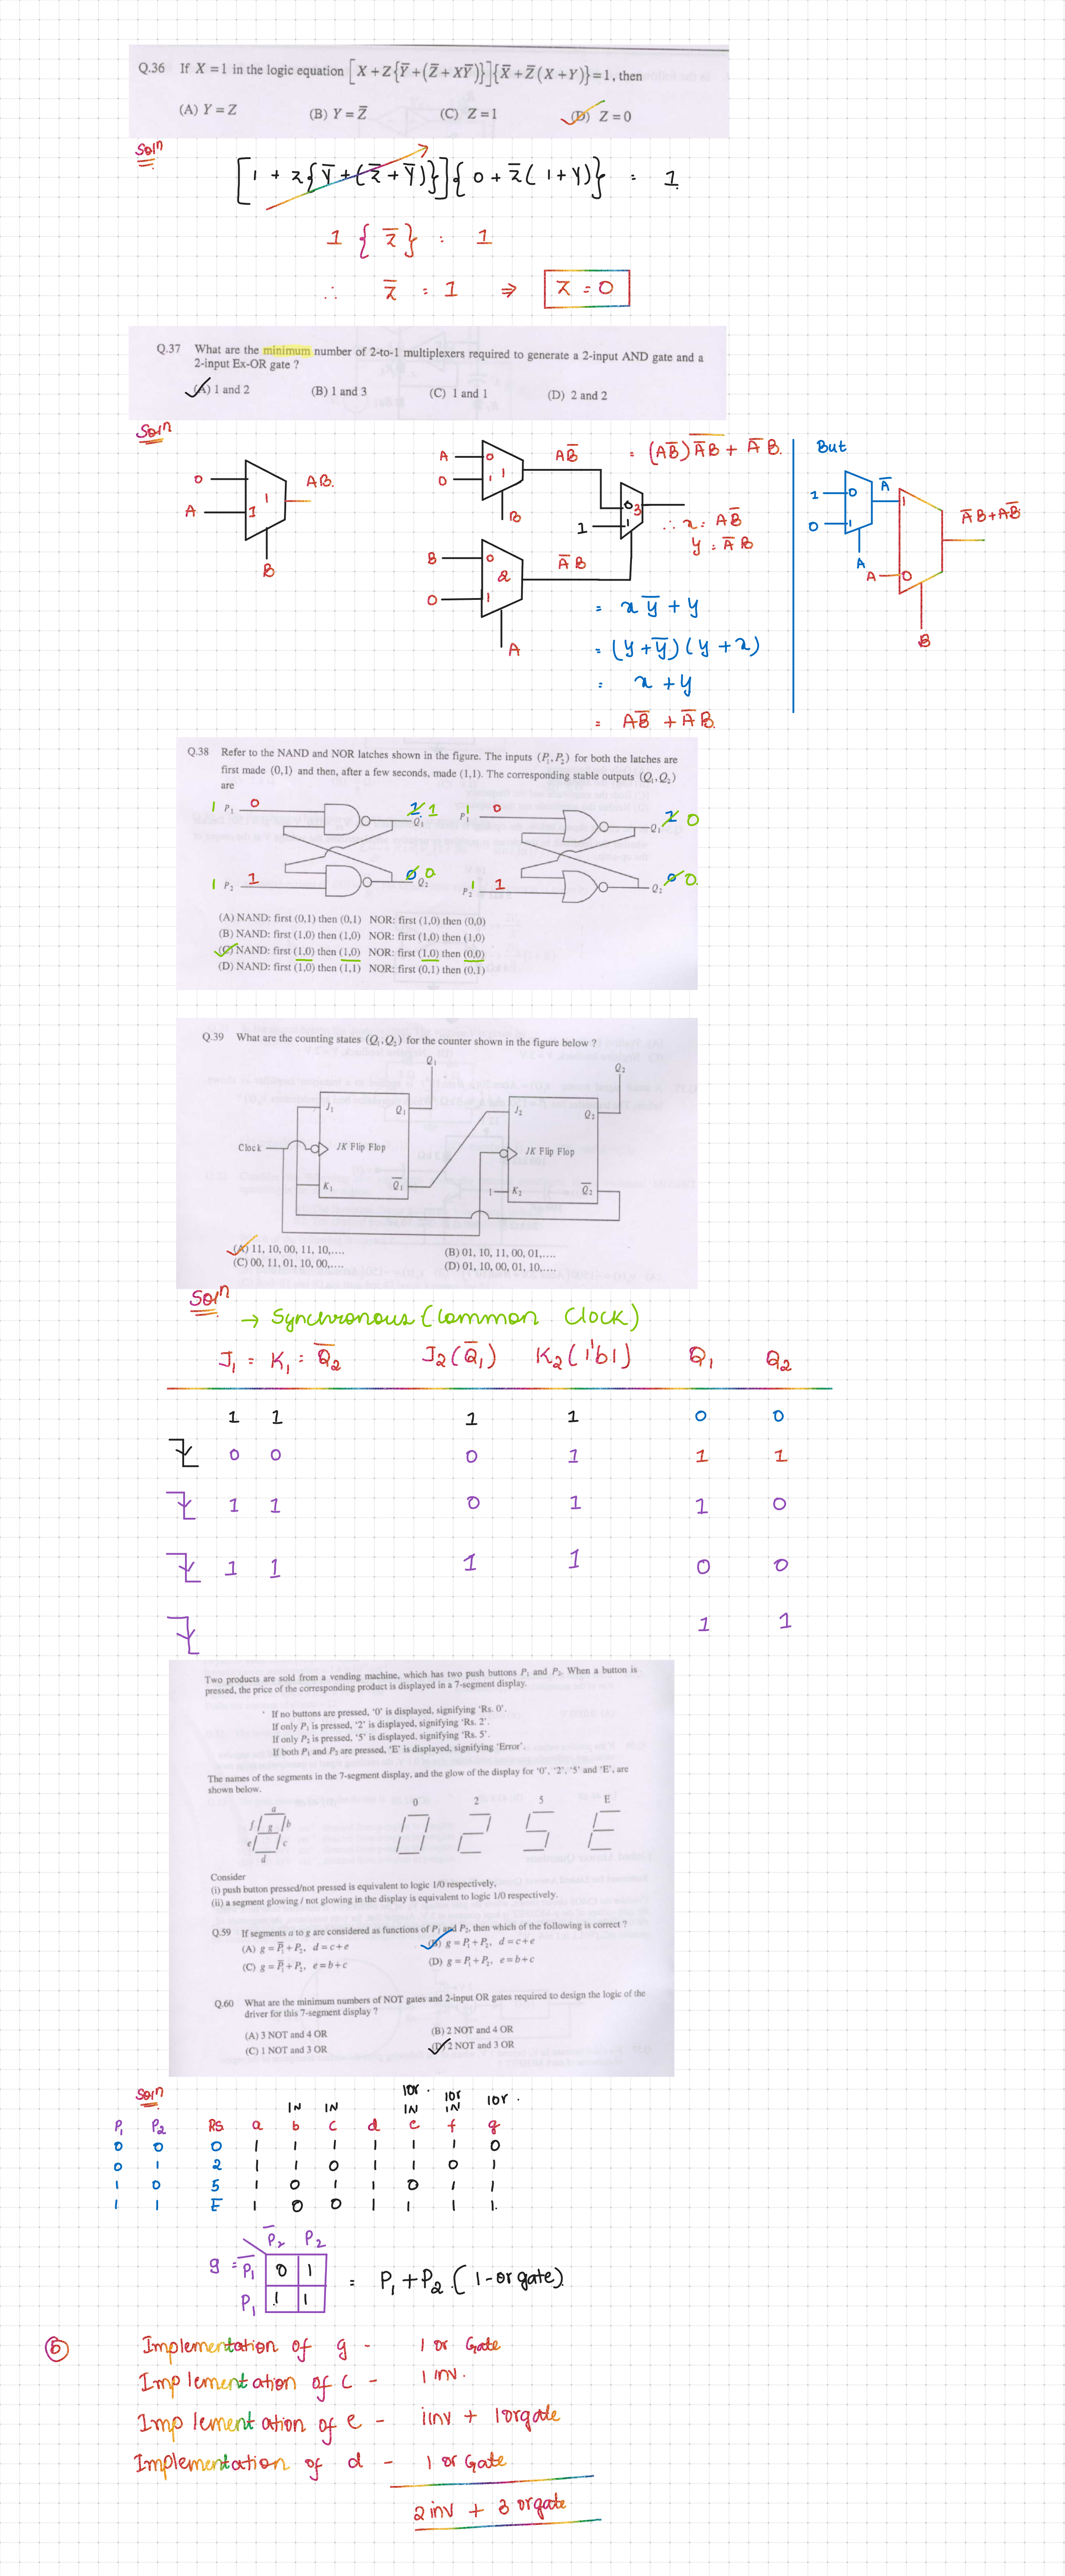 Q.36 If X = 1 in the logic equation [X + Z{Y̅ + (Z̅ + XY̅)}]{X̅ + Z̅(X + Y)} = 1, then
(A) Y = Z (B) Y = Z̅ (C) Z = 1 (D) Z = 0
Soln
[1 + z{y̅ + (z̅ + y̅)}]{0 + z̅(1+Y)} = 1
1 {z̅} = 1
∴ z̅ = 1 ⇒ Z = 0
Q.37 What are the minimum number of 2-to-1 multiplexers required to generate a 2-input AND gate and a
2-input Ex-OR gate ?
(A) 1 and 2 (B) 1 and 3 (C) 1 and 1 (D) 2 and 2
Soln
0 A 1 1 AB. B
A 0 0 1 1 AB̅ B
B 0 0 1 2 A̅B A
1 0 1 3
= (AB̅) A̅B̅ + A̅B.
∴ x = AB̅
y = A̅B
= x y̅ + y
= (y + y̅)(y + x)
= x + y
= AB̅ + A̅B.
But
1 0 0 1 A̅ A
A 0 1 A̅B + AB̅ B
Q.38 Refer to the NAND and NOR latches shown in the figure. The inputs (P₁, P₂) for both the latches are
first made (0,1) and then, after a few seconds, made (1,1). The corresponding stable outputs (Q₁, Q₂)
are
1 P₁ 0 1 1 Q₁ P₁ 1 0 1 0 Q₁
1 P₂ 1 0 0 Q₂ P₂ 1 1 0 0 Q₂
(A) NAND: first (0,1) then (0,1) NOR: first (1,0) then (0,0)
(B) NAND: first (1,0) then (1,0) NOR: first (1,0) then (1,0)
(C) NAND: first (1,0) then (1,0) NOR: first (1,0) then (0,0)
(D) NAND: first (1,0) then (1,1) NOR: first (0,1) then (0,1)
Q.39 What are the counting states (Q₁, Q₂) for the counter shown in the figure below ?
Q₁ Q₂
J₁ Q₁ J₂ Q₂
Clock JK Flip Flop JK Flip Flop
K₁ Q̅₁ 1 K₂ Q̅₂
(A) 11, 10, 00, 11, 10,.... (B) 01, 10, 11, 00, 01,....
(C) 00, 11, 01, 10, 00,.... (D) 01, 10, 00, 01, 10,....
Soln
→ Synchronous (Common Clock)
J₁ = K₁ = Q̅₂ J₂(Q̅₁) K₂(1'b1) Q₁ Q₂
1 1 1 1 0 0
0 0 0 1 1 1
1 1 0 1 1 0
1 1 1 1 0 0
1 1
Two products are sold from a vending machine, which has two push buttons P₁ and P₂. When a button is
pressed, the price of the corresponding product is displayed in a 7-segment display.
If no buttons are pressed, '0' is displayed, signifying 'Rs. 0'.
If only P₁ is pressed, '2' is displayed, signifying 'Rs. 2'.
If only P₂ is pressed, '5' is displayed, signifying 'Rs. 5'.
If both P₁ and P₂ are pressed, 'E' is displayed, signifying 'Error'.
The names of the segments in the 7-segment display, and the glow of the display for '0', '2', '5' and 'E', are
shown below.
0 2 5 E
a
f g b
e c
d
Consider
(i) push button pressed/not pressed is equivalent to logic 1/0 respectively,
(ii) a segment glowing / not glowing in the display is equivalent to logic 1/0 respectively.
Q.59 If segments a to g are considered as functions of P₁ and P₂, then which of the following is correct ?
(A) g = P̅₁ + P₂, d = c + e (B) g = P₁ + P₂, d = c + e
(C) g = P̅₁ + P₂, e = b + c (D) g = P₁ + P₂, e = b + c
Q.60 What are the minimum numbers of NOT gates and 2-input OR gates required to design the logic of the
driver for this 7-segment display ?
(A) 3 NOT and 4 OR (B) 2 NOT and 4 OR
(C) 1 NOT and 3 OR (D) 2 NOT and 3 OR
Soln
1or. 1or 1or.
1N 1N 1N 1N
P₁ P₂ Rs a b c d e f g
0 0 0 1 1 1 1 1 1 0
0 1 2 1 1 0 1 1 0 1
1 0 5 1 0 1 1 0 1 1
1 1 E 1 0 0 1 1 1 1.
P̅₂ P₂
g = P̅₁ 0 1 = P₁ + P₂ (1-or gate)
P₁ 1 1
⑥ Implementation of g - 1 or Gate
Implementation of c - 1 inv.
Implementation of e - 1inv + 1orgate
Implementation of d - 1 or Gate
2 inv + 3 orgate